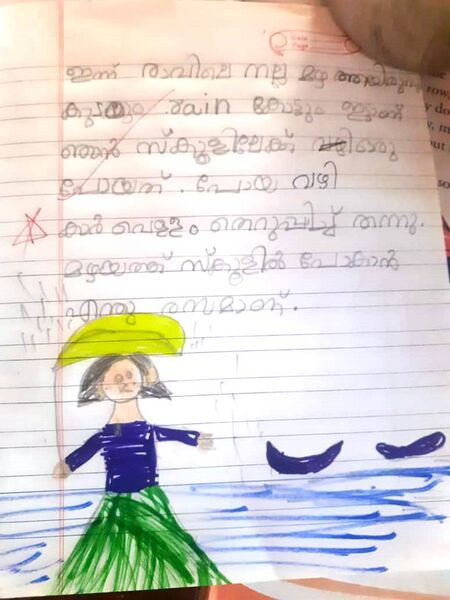 Date
Page
ഇന്ന് രാവിലെ നല്ല മഴ ആയിരുന്നു
കുടയും rain കോട്ടും ഇട്ടാണ്
ഞാൻ സ്കൂളിലേക്ക് ഒരു
പോയത്. പോയ വഴി
കാർ വെള്ളം തെറുപ്പിച്ച് തന്നു.
മഴയത്ത് സ്കൂളിൽ പോകാൻ
എന്തു രസമാണ്.